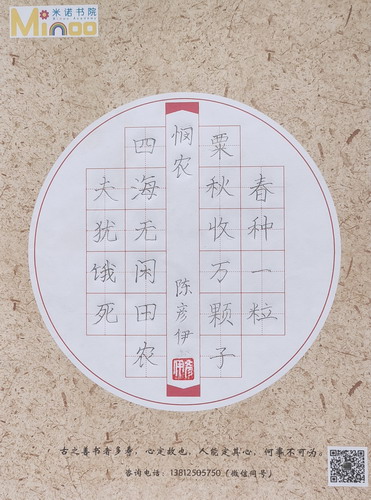 米诺书院
Minoo Academy
Minoo
春种一粒
粟秋收万颗子
悯农
陈彦伊
四海无闲田农
夫犹饿死
古之善书者多寿，心定故也，人能定其心，何事不可为。
咨询电话：13812505750（微信同号）